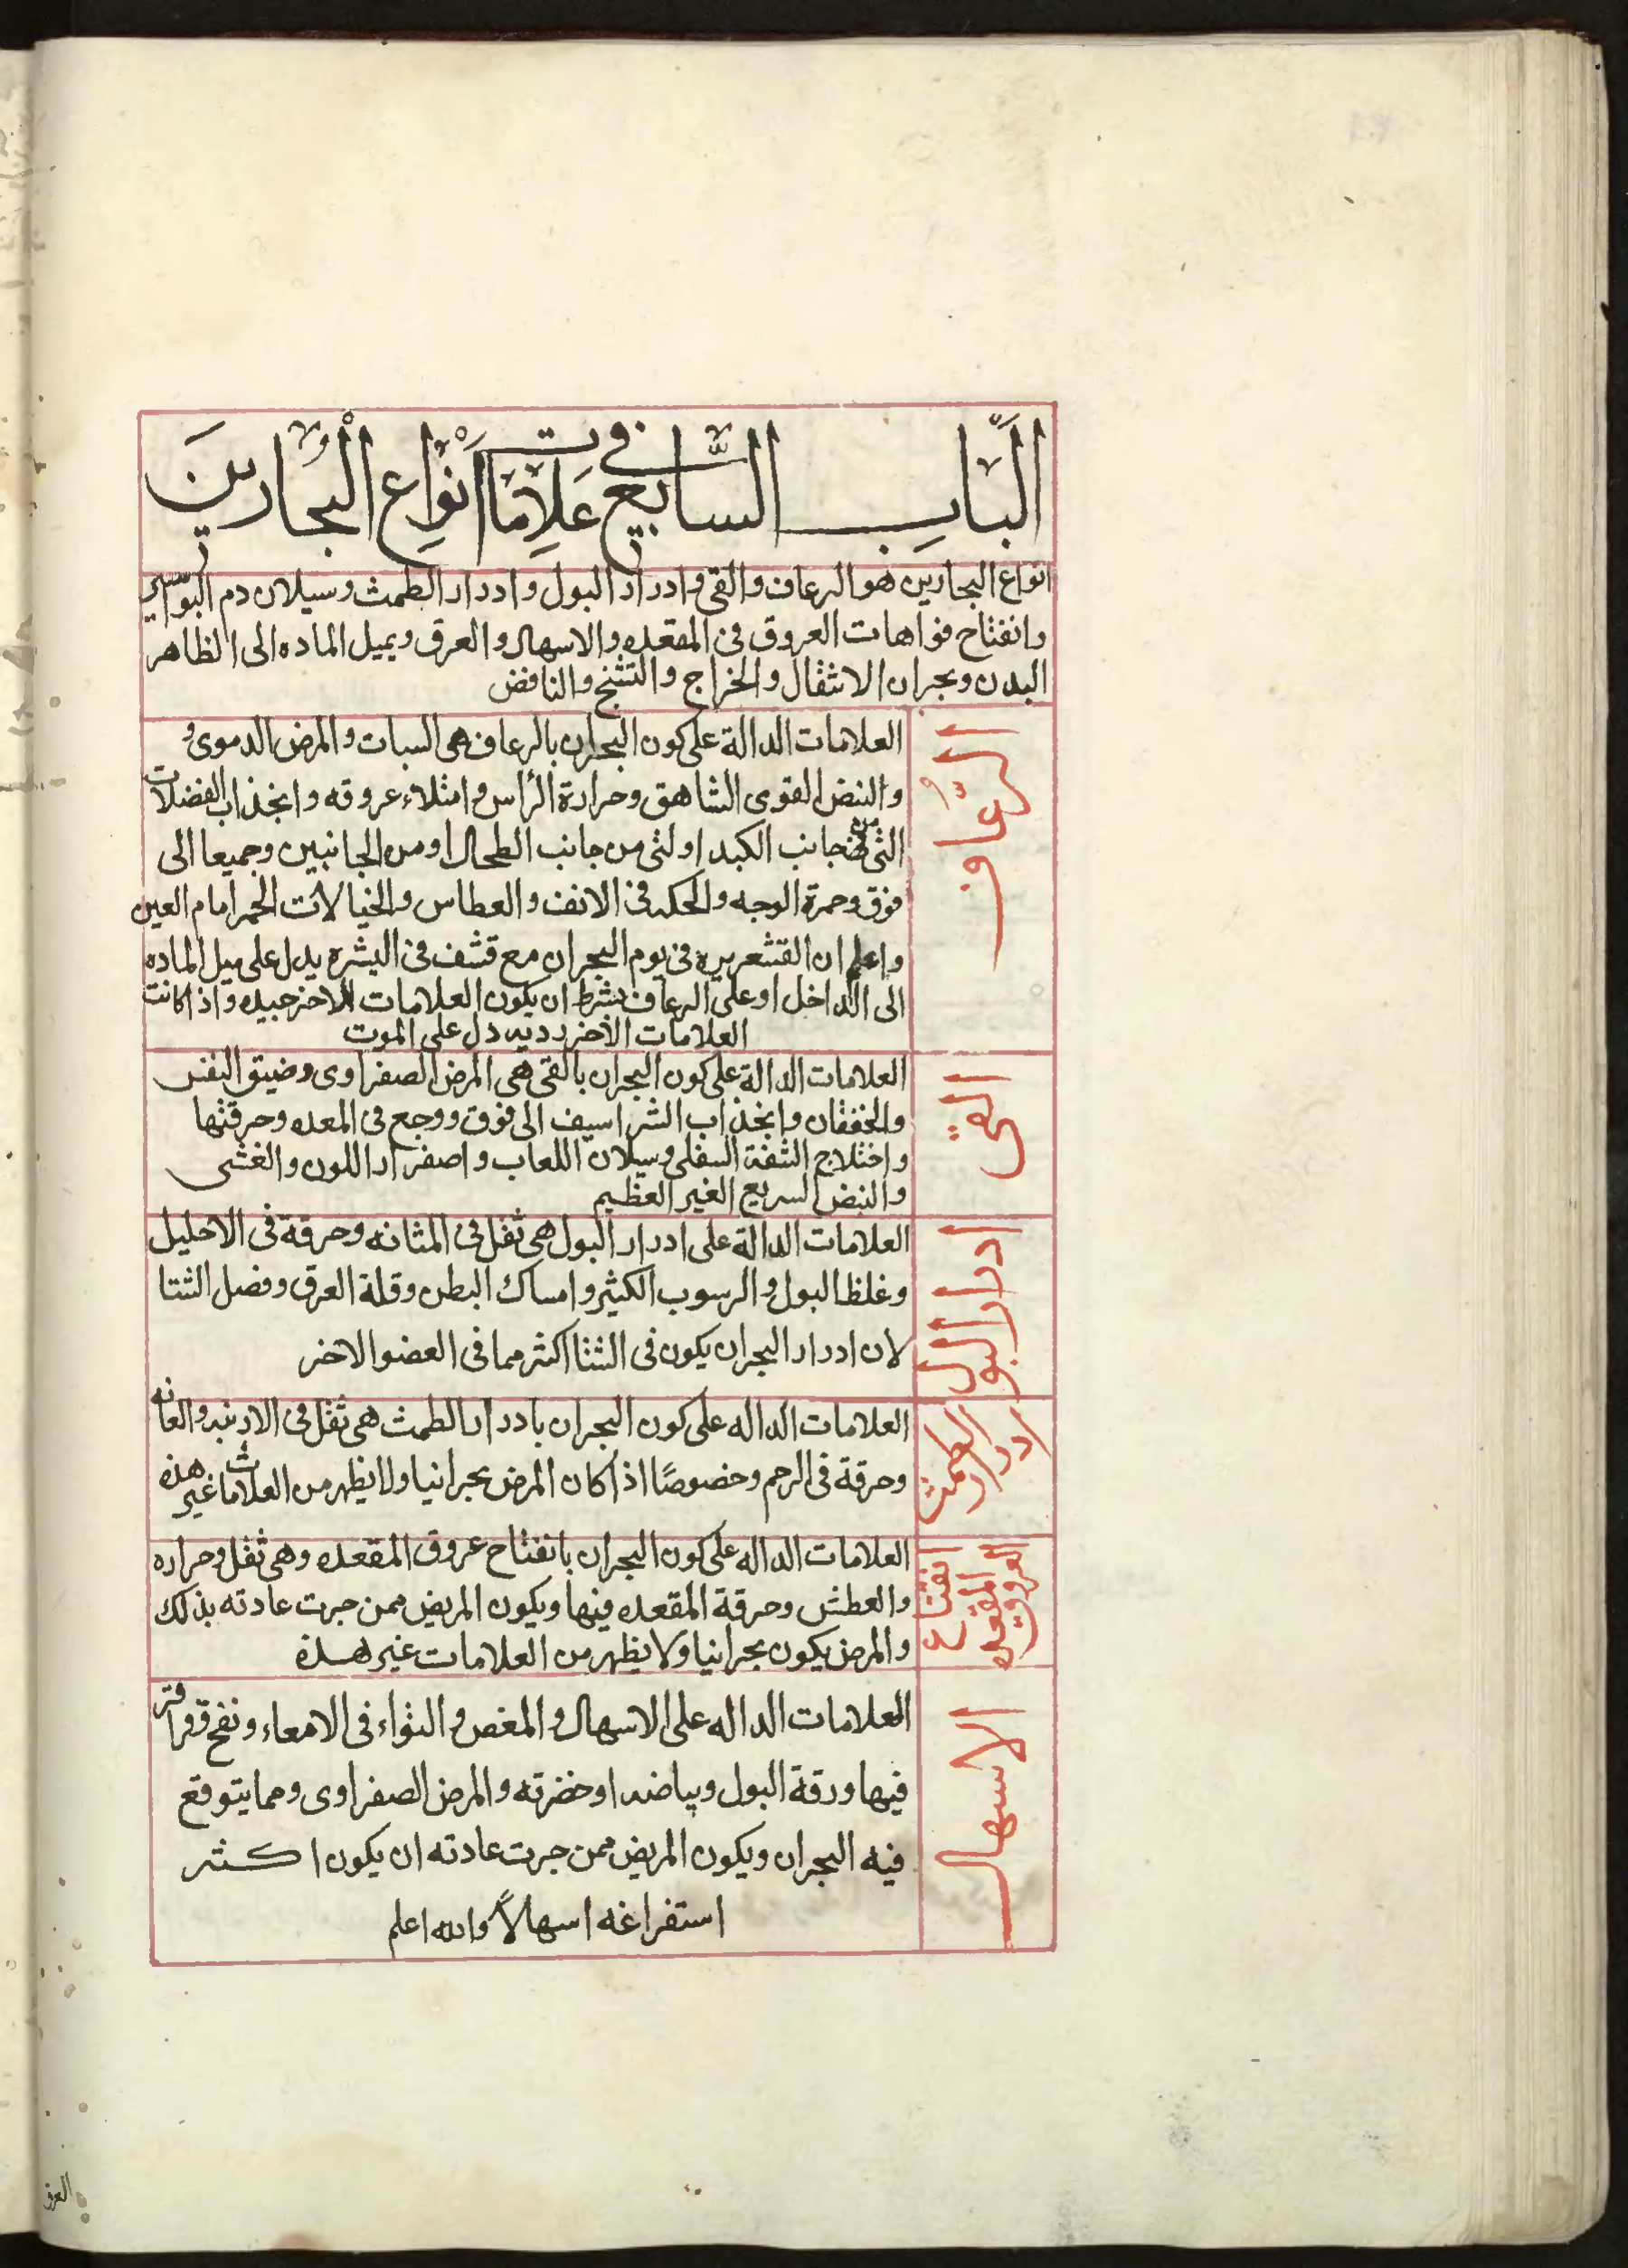 الباب السابع في علامات أنواع البحارين
انواع البحارين هو الرعاف والقى وادرار البول وادرار الطمث وسيلان دم البواسير
وانفتاح فواهات العروق فى المقعده والاسهال والعرق ويميل الماده الى الظاهر
البدن وبحران الانتقال والخراج والتشنج والنافض
الرعاف
العلامات الدالة على كون البحران بالرعاف هى السبات والمرض الدموى و
والنبض القوى الشاهق وحرارة الرأس وامتلاء عروقه وانجذاب الفضلات
التى من جانب الكبد او لتى من جانب الطحال او من الجانبين وجميعا الى
فوق وحمرة الوجه والحكه فى الانف والعطاس والخيالات الحمر امام العين
واعلم ان القشعريره فى يوم البحران مع قشف فى البشره يدل على ميل الماده
الى الداخل او على الرعاف بشرط ان يكون العلامات الاخر جيده واذا كانت
العلامات الأخر رديه دل على الموت
القى
العلامات الدالة على كون البحران بالقى هى المرض الصفراوى وضيق النفس
والخفقان وانجذاب الشراسيف الى فوق ووجع فى المعده وحرقتها
واختلاج الشفة السفلى وسيلان اللعاب واصفرار اللون والغشى
والنبض السريع الغير العظيم
ادرار البول
العلامات الدالة على ادرار البول هى ثقل فى المثانه وحرقة فى الاحليل
وغلظ البول والرسوب الكثير وامساك البطن وقلة العرق وفصل الشتا
لان ادرار البحران يكون فى الشتا اكثر مما فى العضو الاخر
ادرار الطمث
العلامات الداله على كون البحران بادرار الطمث هى ثقل فى الاربيه والعانه
وحرقة فى الرحم وخصوصًا اذا كان المرض بحرانيا ولا يظهر من العلامات غير هذه
انفتاح العروق المقعده
العلامات الداله على كون البحران بانفتاح عروق المقعده وهى ثقل وحراره
والعطش وحرقة المقعده فيها ويكون المريض ممن جرت عادته بذلك
والمرض يكون بحرانيا ولا يظهر من العلامات غير هذه
الاسهال
العلامات الداله على الاسهال والمغص والتواء فى الامعاء ونفخ وقراقر
فيها ورقة البول وبياضه او خضرته والمرض الصفراوى ومما يتوقع
فيه البحران ويكون المريض ممن جرت عادته ان يكون اكثر
استفراغه اسهالاً والله اعلم
العرق